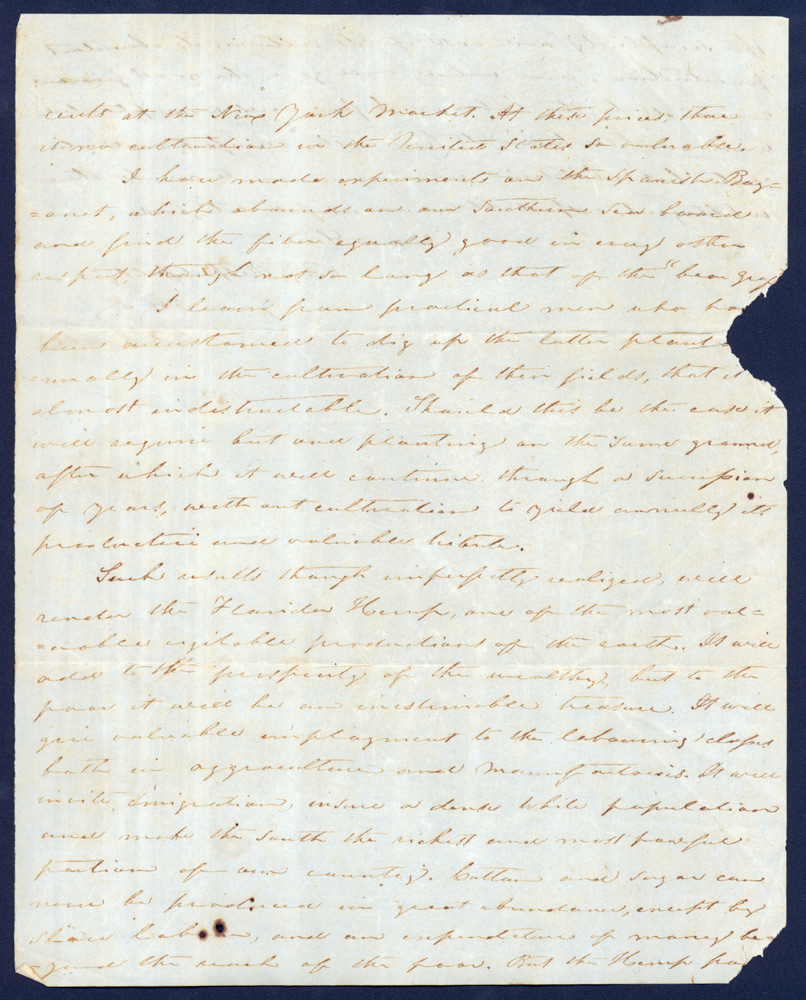 cents at the New York Market. At these prices there
is no cultivation in the United States so valuable.
I have made experiments on the Spanish Bay=
=onet, which abounds on our Southern sea board
and find the fiber equally good in evry other
respect, though not so long as that of the "bear gras
I learn from practical men who ha
been accustomed to dig up the latter plant
=nually in the cultivation of their fields, that it
almost indestructable. Should this be the case it
will require but one planting on the same ground,
after which it will continue through a
of years, without cultivation to yield annully its
productive and valuable
Such results though imperfectly realized, will
render the Florida Hemp, one of the most val=
=uable vegitable productions of the earth. It will
add to the prosperity of the wealthy, but to the
poor it will be an inestimable treasure. It will
give valuable employment to the labouring classes
both in aggraculture and It will
invite emigration, insure a dense white population
and make the South the richest and most powerful
portion of our country. Cotton and sugar can
never be produced in great abundance, except by
slave labour, and an expenditure of money be
yond the reach of the poor. But the Hemp